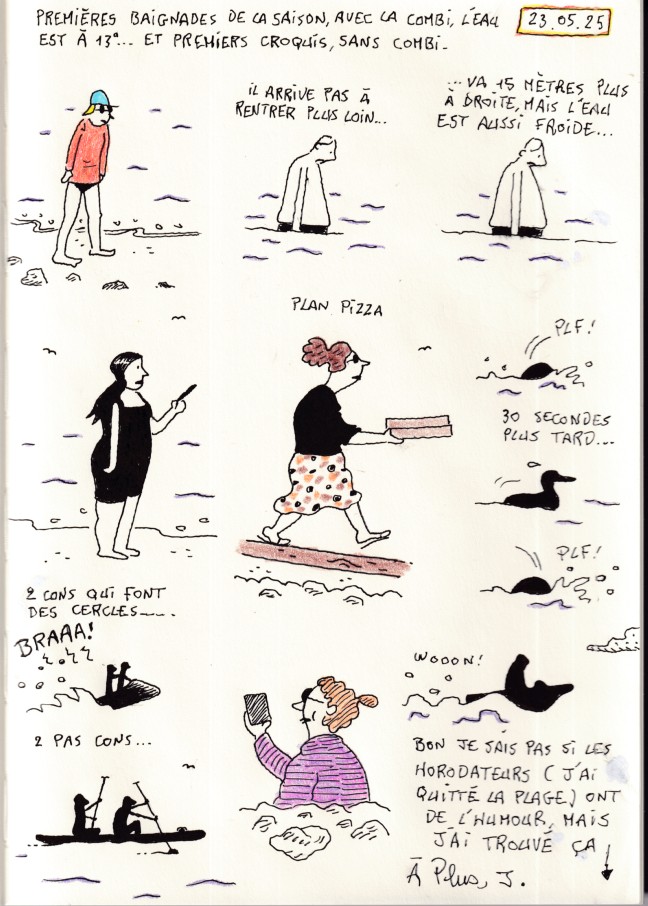 PREMIÈRES BAIGNADES DE LA SAISON, AVEC LA COMBI, L'EAU
EST À 13°... ET PREMIERS CROQUIS, SANS COMBI.
23.05.25
IL ARRIVE PAS À
RENTRER PLUS LOIN...
...VA 15 MÈTRES PLUS
À DROITE, MAIS L'EAU
EST AUSSI FROIDE...
PLAN PIZZA
PLF!
30 SECONDES
PLUS TARD...
PLF!
2 CONS QUI FONT
DES CERCLES......
BRAAA!
2 PAS CONS...
WOOON!
BON JE SAIS PAS SI LES
HORODATEURS (J'AI
QUITTÉ LA PLAGE) ONT
DE L'HUMOUR, MAIS
J'AI TROUVÉ ÇA
À Plus, J.